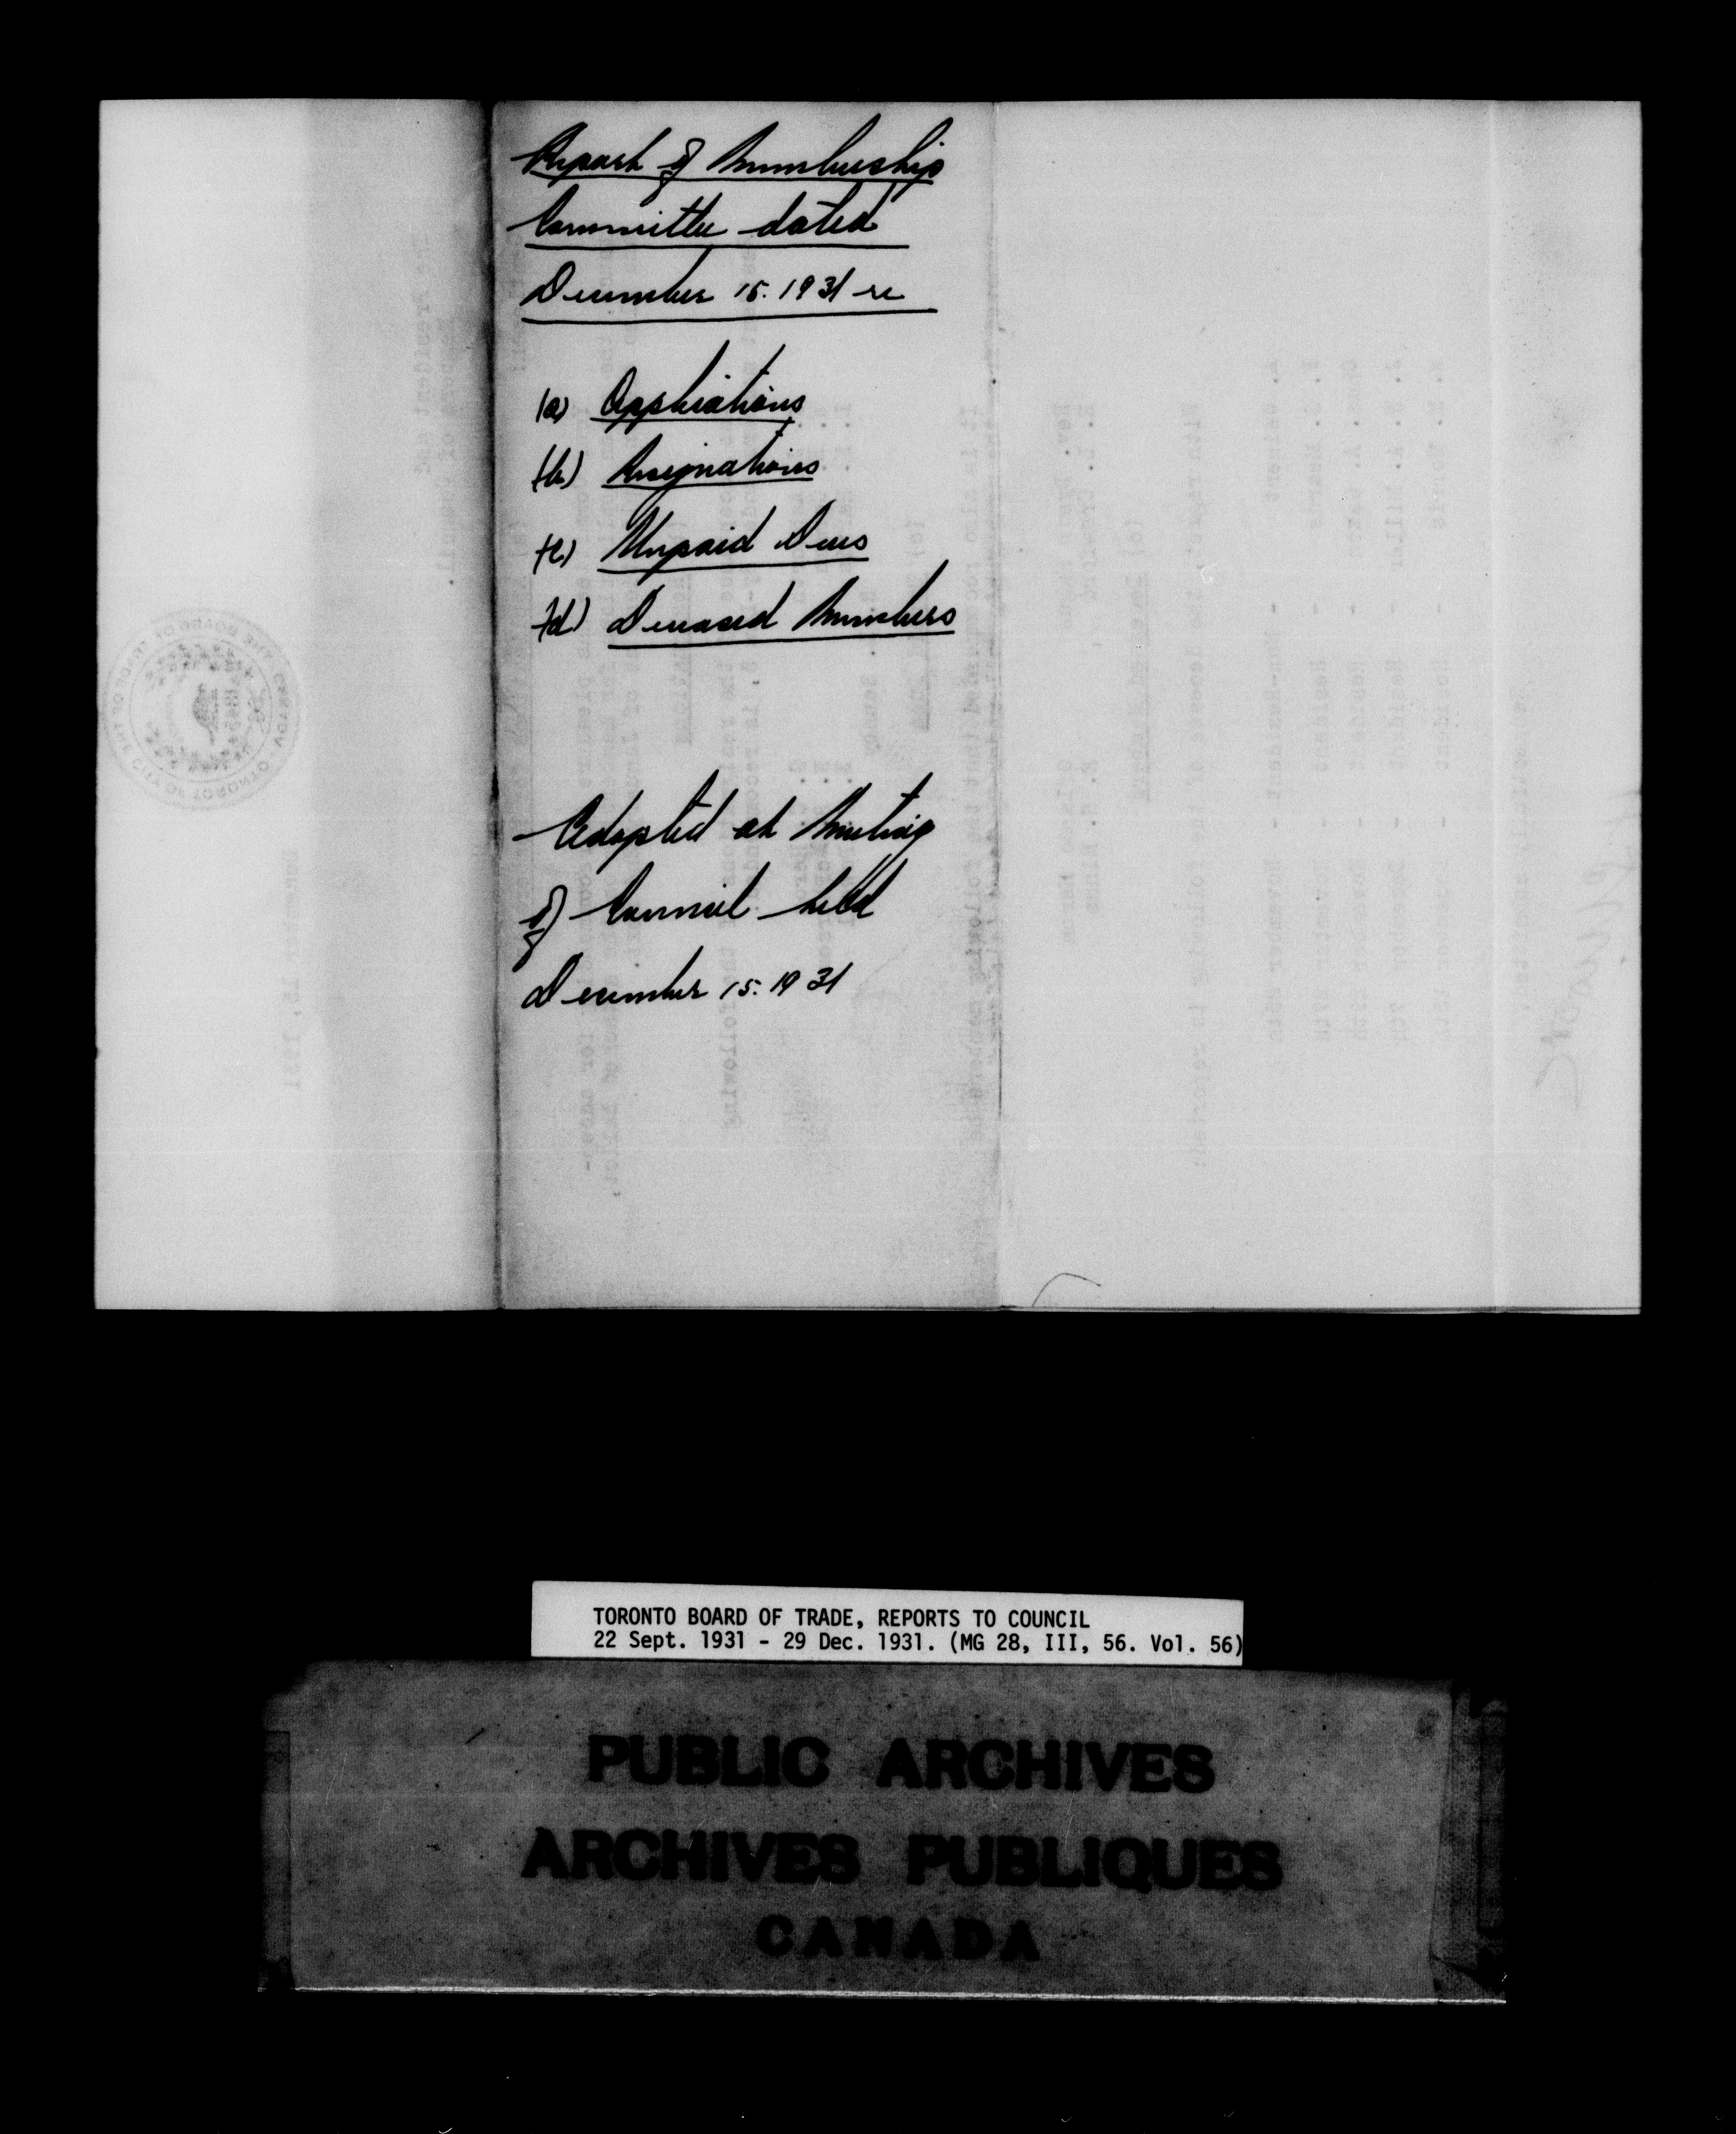 Report of Membership
Committee dated
December 15. 1931 re
(a) Applications
(b) Resignations
(c) Unpaid Dues
(d) Deceased Members
Adopted at Meeting
of Council held
December 15. 1931
TORONTO BOARD OF TRADE, REPORTS TO COUNCIL
22 Sept. 1931 - 29 Dec. 1931. (MG 28, III, 56. Vol. 56)
PUBLIC ARCHIVES
ARCHIVES PUBLIQUES
CANADA